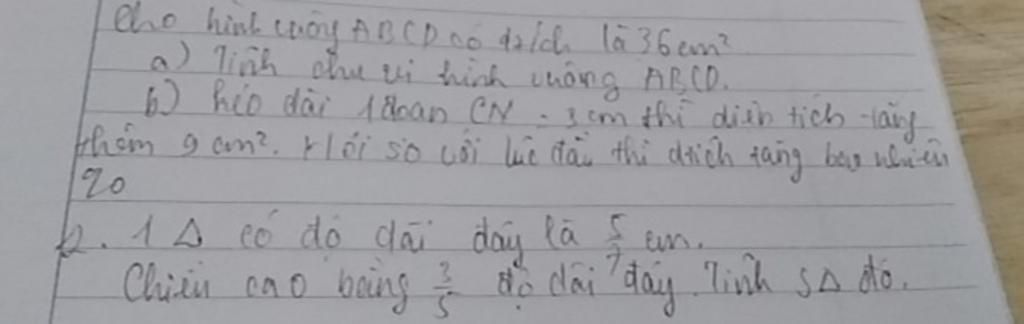 Cho hình vuông ABCD có dtích là 36 cm²
a) Tính chu vi hình vuông ABCD.
b) kéo dài 1 đoạn CN = 3cm thì diện tích tăng
thêm 9 cm². Hỏi so với lúc đầu thì dtích tăng bao nhiêu
%
2. 1 Δ có độ dài đáy là 5/7 cm.
Chiều cao bằng 3/5 độ dài đáy. Tính SΔ đó.